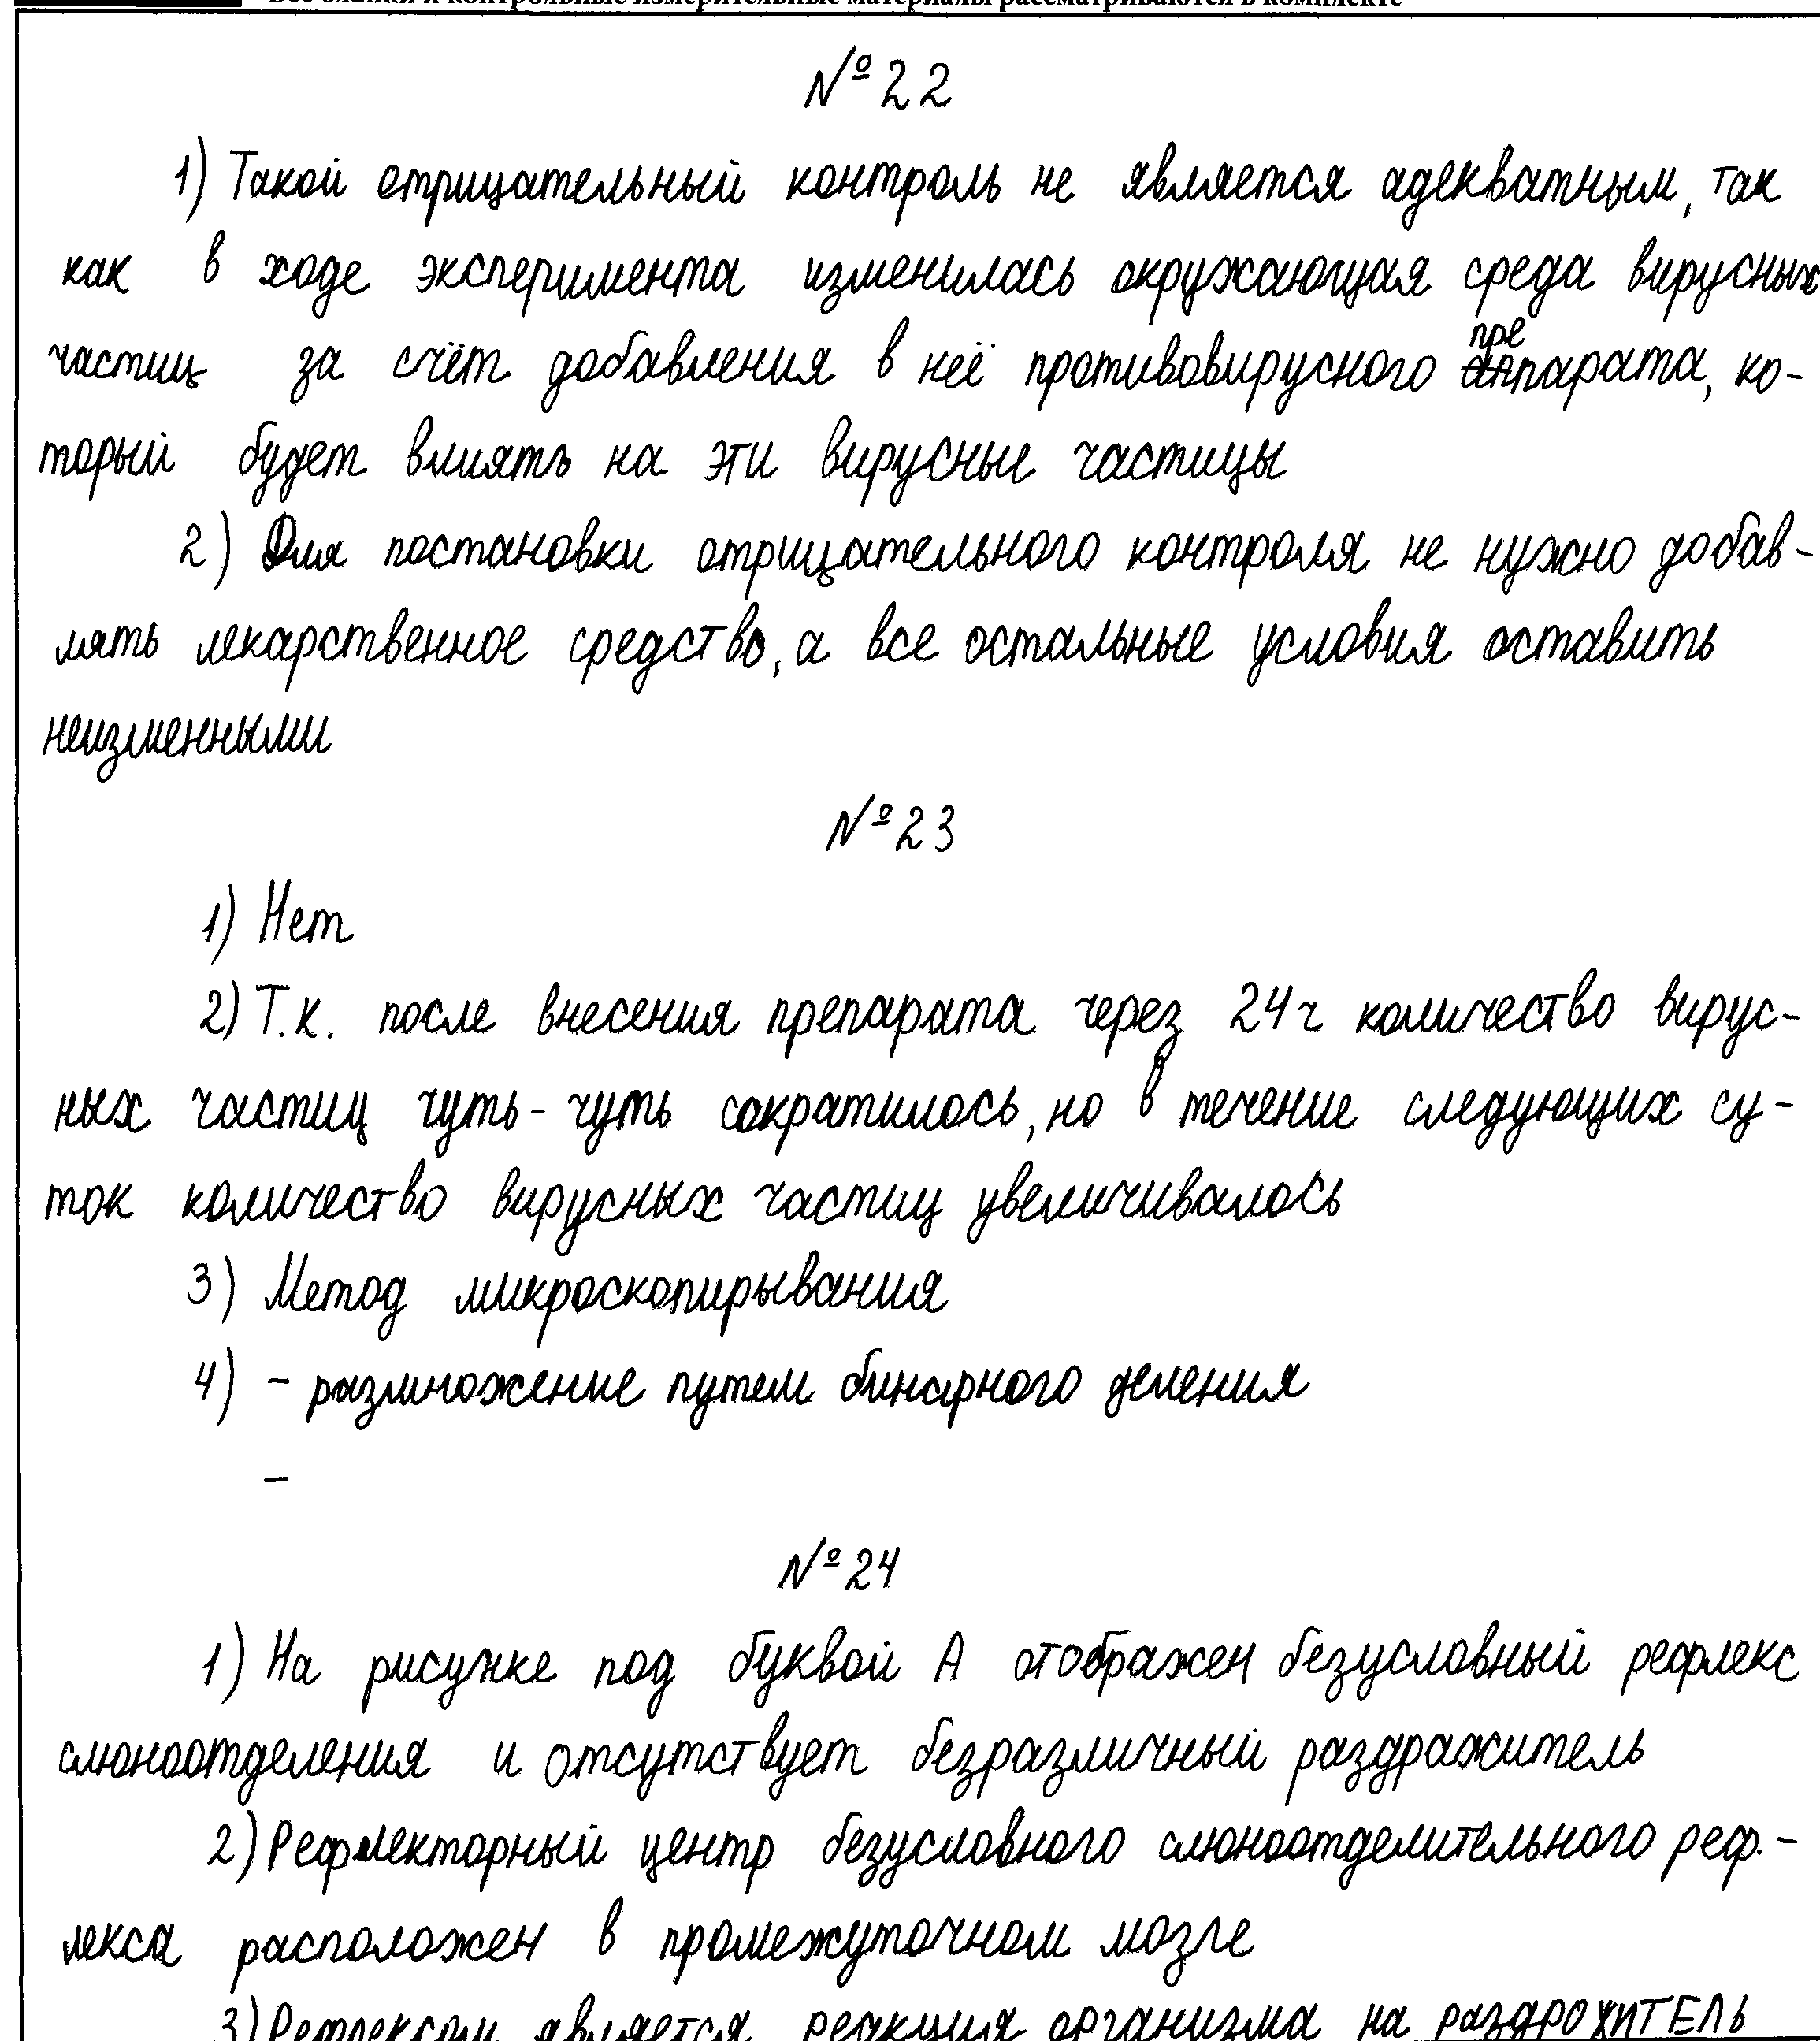 Все бланки и контрольные измерительные материалы рассматриваются в комплекте
№22
1) Такой отрицательный контроль не является адекватным, так
как в ходе эксперимента изменилась окружающая среда вирусных
частиц за счёт добавления в неё противовирусного препарата, ко-
торый будет влиять на эти вирусные частицы
2) Для постановки отрицательного контроля не нужно добав-
лять лекарственное средство, а все остальные условия оставить
неизменными
№23
1) Нет
2) Т.к. после внесения препарата через 24ч количество вирус-
ных частиц чуть-чуть сократилось, но в течение следующих су-
ток количество вирусных частиц увеличивалось
3) Метод микроскопирывания
4) - размножение путем бинарного деления
-
№24
1) На рисунке под буквой А отображен безусловный рефлекс
слюноотделения и отсутствует безразличный раздражитель
2) Рефлекторный центр безусловного слюноотделительного реф.-
лекса расположен в промежуточном мозге
3) Рефлексом является реакция организма на раздрожитель